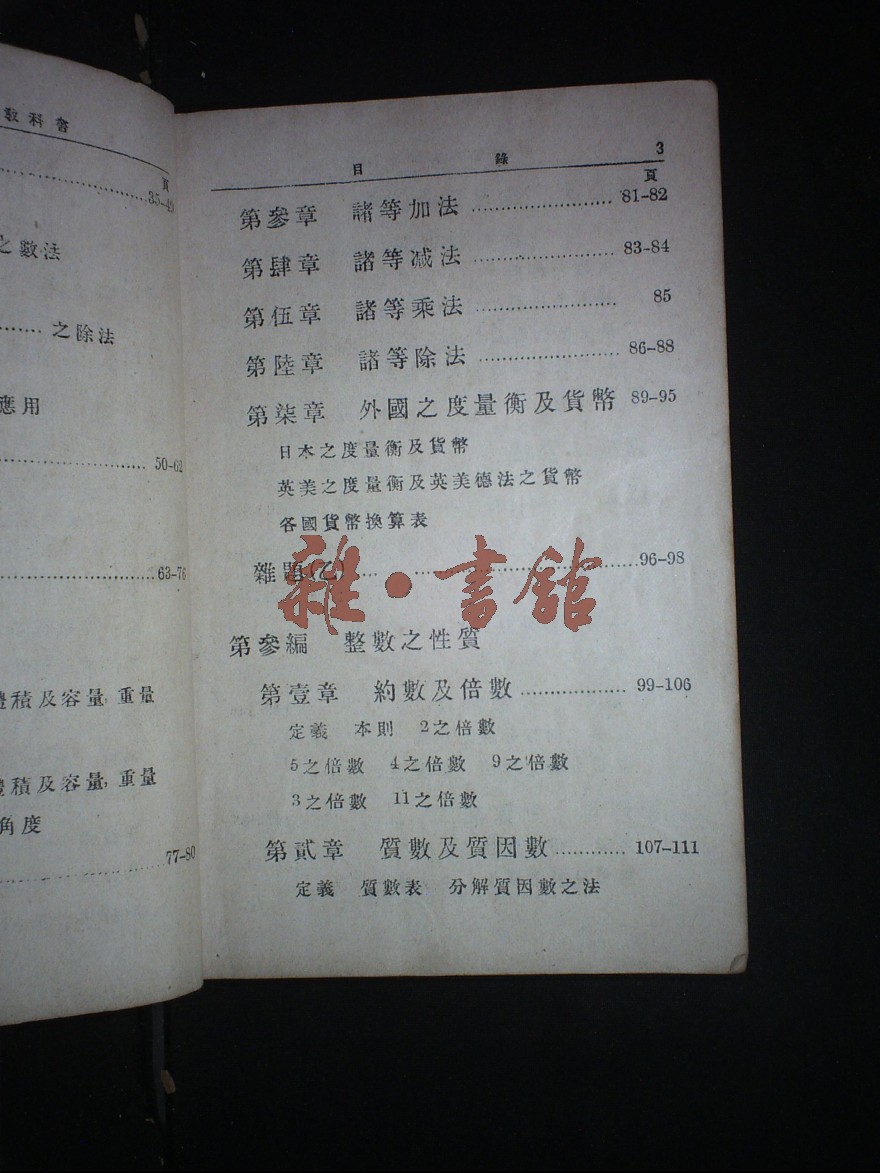 教科書
頁
35-49
之數法
之除法
應用
50-62
63-76
體積及容量,重量
體積及容量,重量
角度
77-80
目 錄 3
頁
第參章 諸等加法 81-82
第肆章 諸等減法 83-84
第伍章 諸等乘法 85
第陸章 諸等除法 86-88
第柒章 外國之度量衡及貨幣 89-95
日本之度量衡及貨幣
英美之度量衡及英美德法之貨幣
各國貨幣換算表
雜題(乙) 96-98
雜·書館
第參編 整數之性質
第壹章 約數及倍數 99-106
定義 本則 2之倍數
5之倍數 4之倍數 9之倍數
3之倍數 11之倍數
第貳章 質數及質因數 107-111
定義 質數表 分解質因數之法